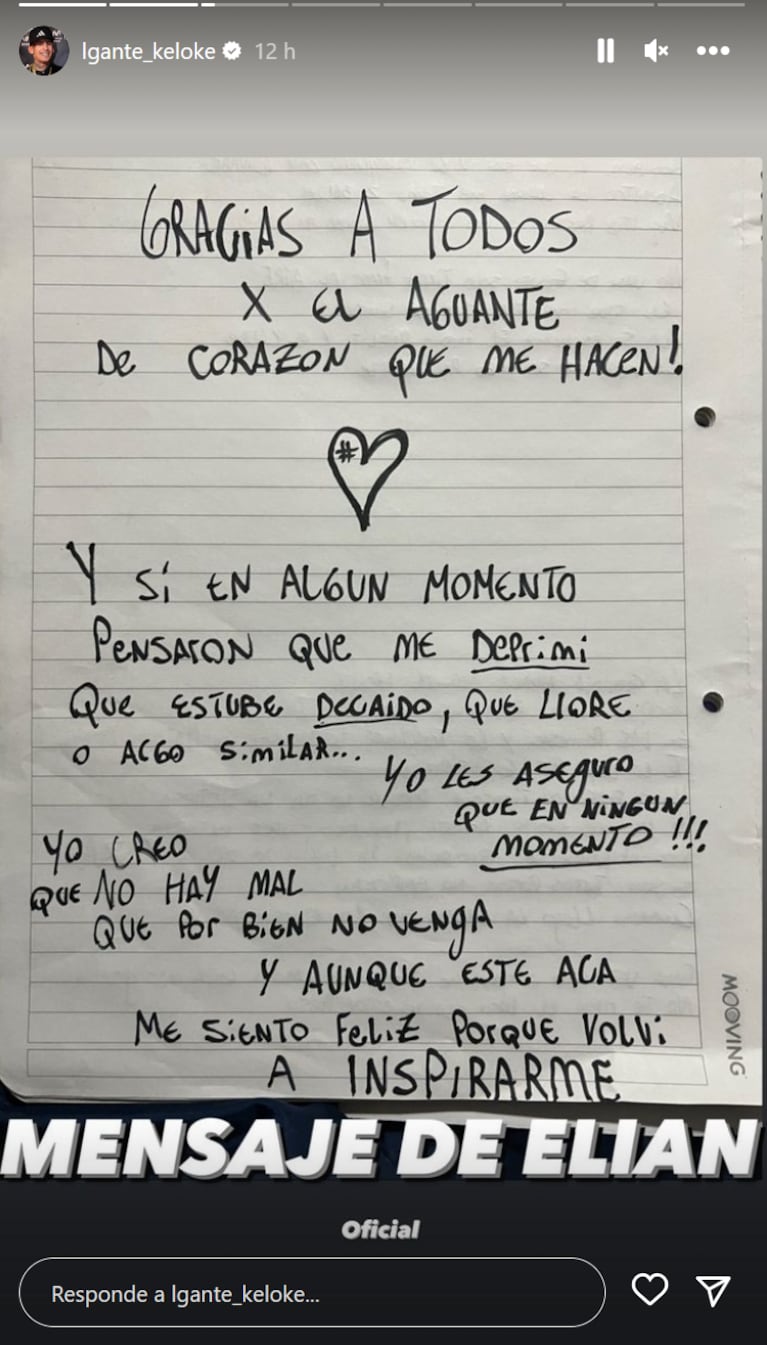 lgante_keloke 12 h
GRACIAS A TODOS
X EL AGUANTE
DE CORAZON QUE ME HACEN!
#
Y SÍ EN ALGUN MOMENTO
PENSARON QUE ME DEPRIMI
QUE ESTUBE DECAIDO, QUE LLORE
O ALGO SIMILAR...
YO LES ASEGURO
QUE EN NINGUN
MOMENTO!!!
YO CREO
QUE NO HAY MAL
QUE POR BIEN NO VENGA
Y AUNQUE ESTE ACA
ME SIENTO FELIZ PORQUE VOLVI
A INSPIRARME
MOOVING
MENSAJE DE ELIAN
Oficial
Responde a lgante_keloke...